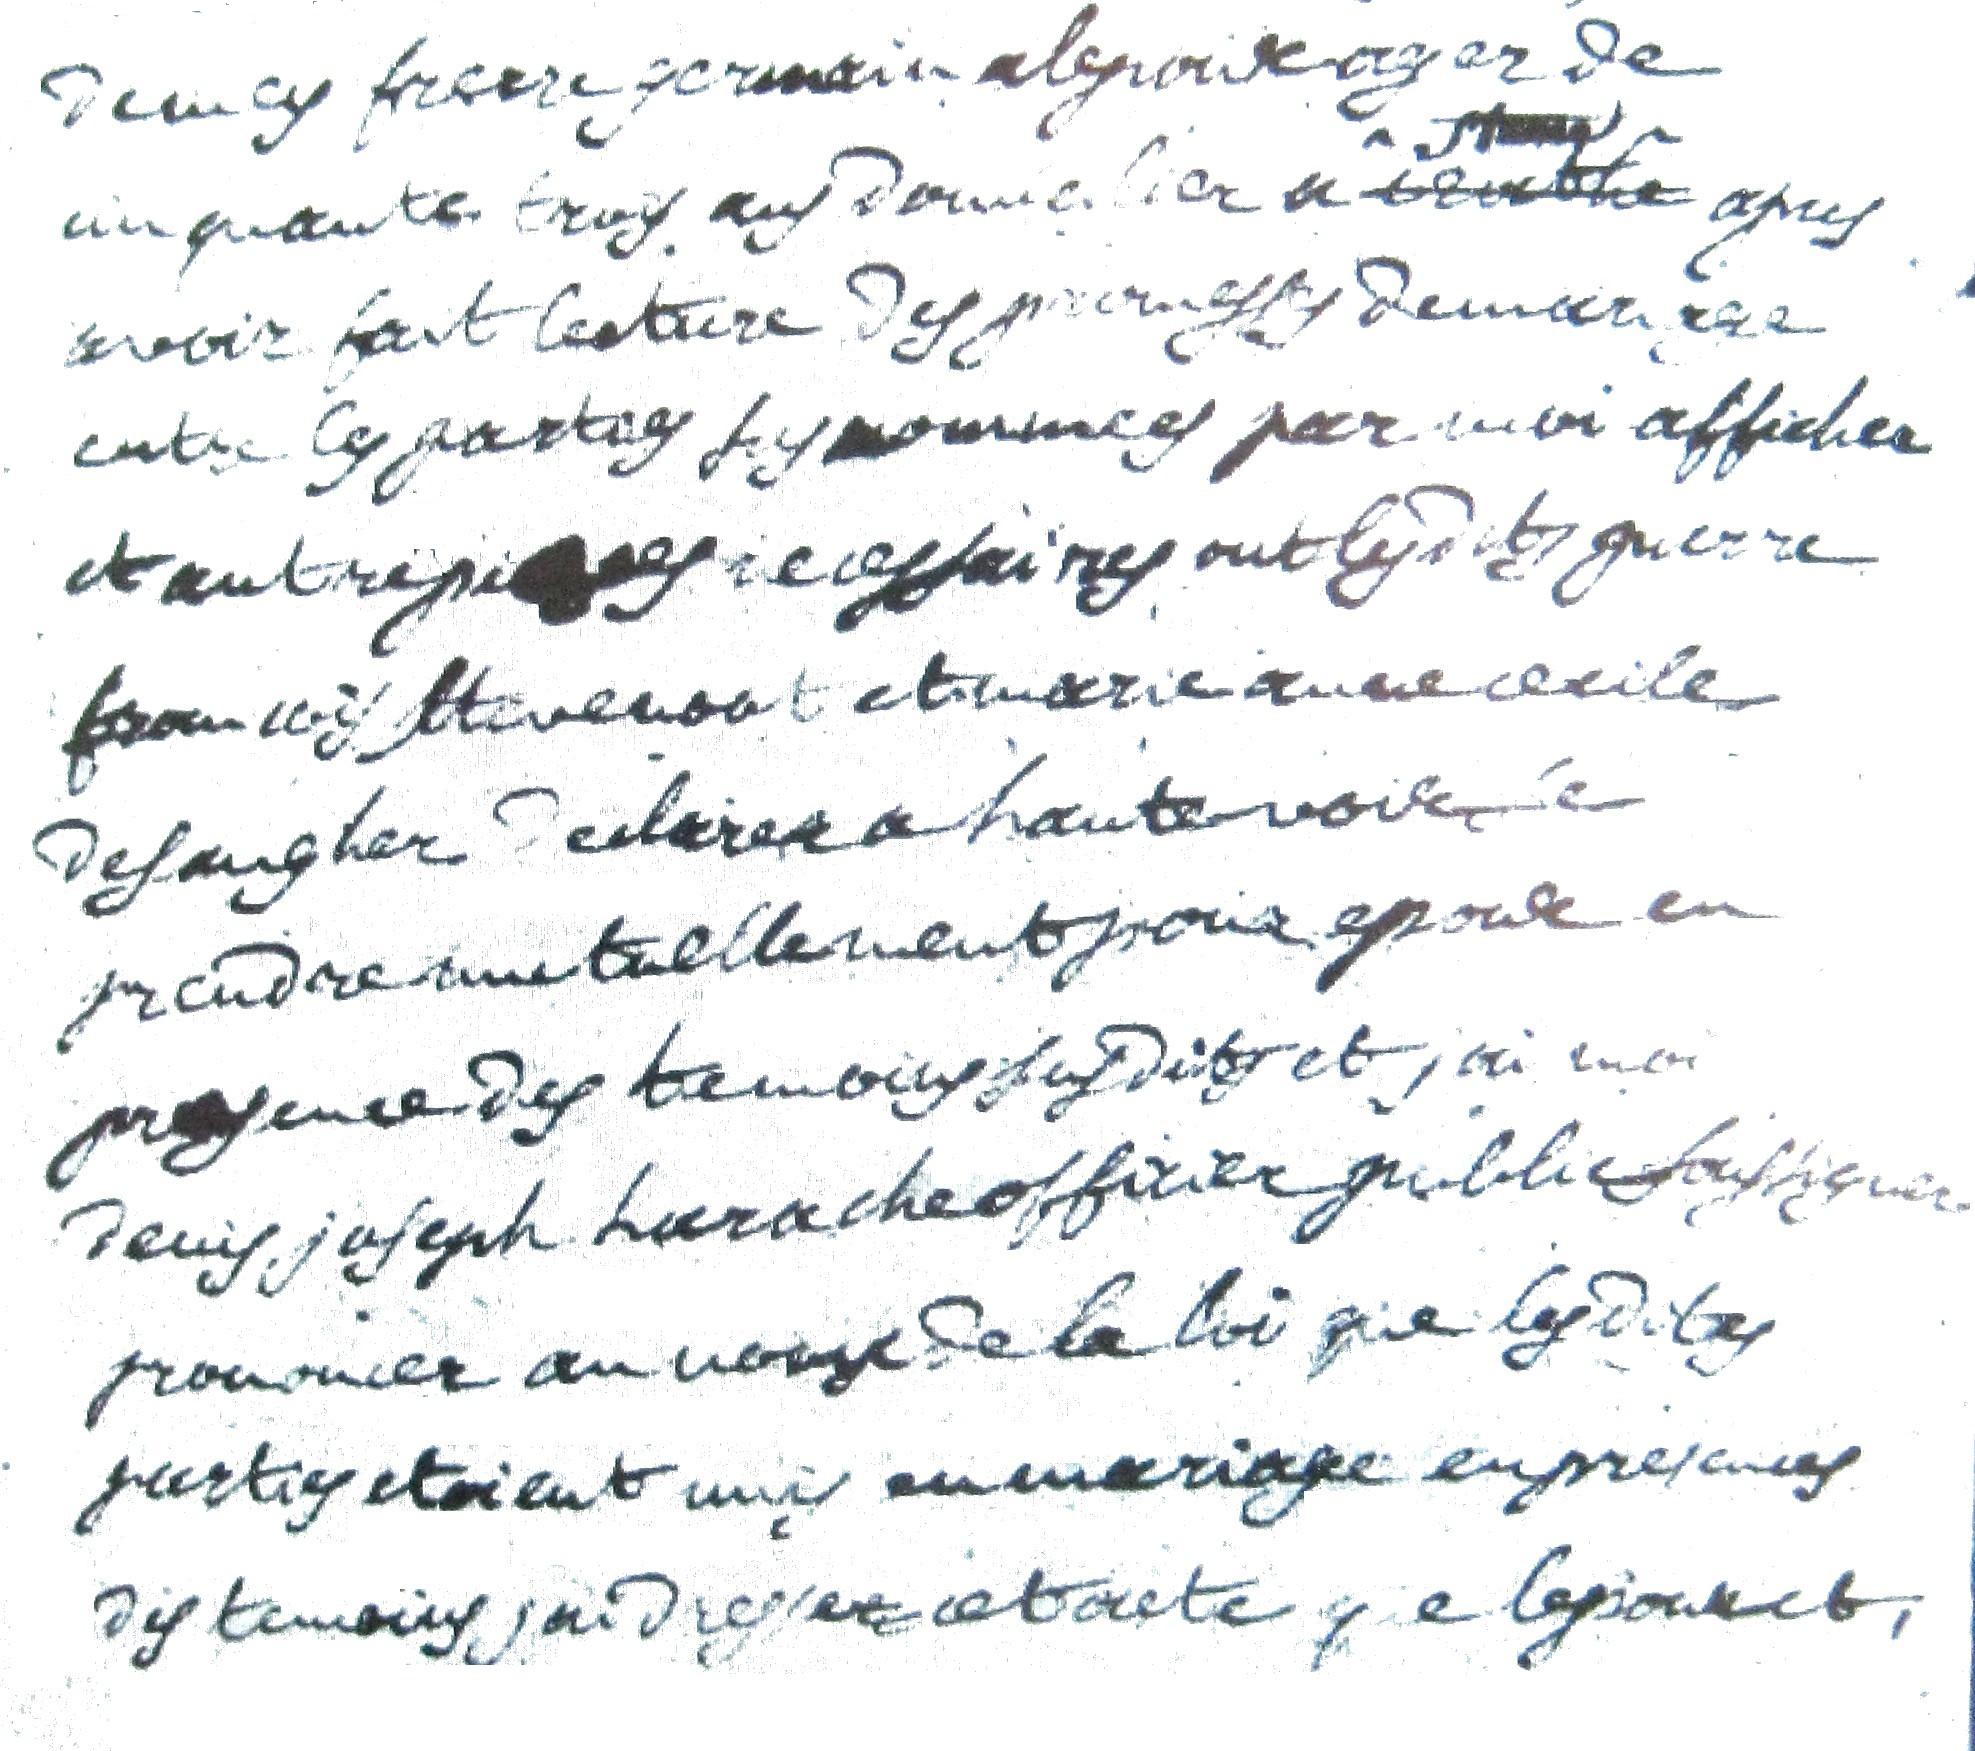 demes frerre germain alepoux ager de
cinquante troy ans domicilier a apres
avoir fait lecture des promesses demariage
entre les parties sus nommees par moi afficher
et autres pieces necessaires ont lesdits guerre
francois stevenont et marie anne cecile
desangher declarer a haute voix se
prendre mutuellement pour epoux en
presence des temoins susdits et jai moi
denis joseph harache officier public soussigner
prononcer au nom de la loi que lesdites
parties etoient unis en mariage en presences
des temoins jai dresser cet acte que lepoux et,